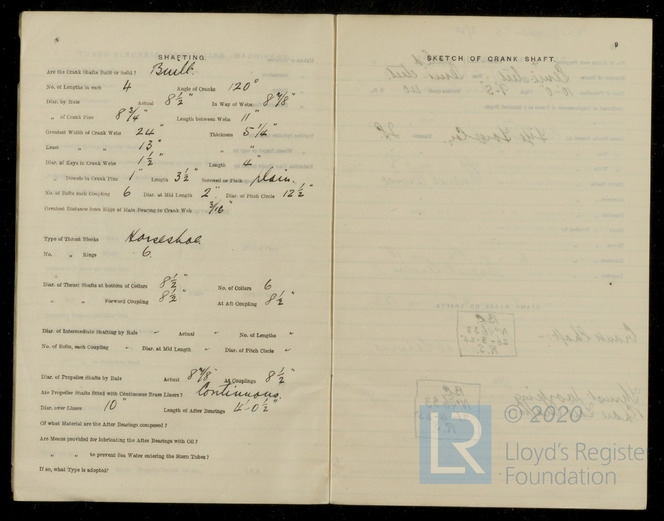 8
SHAFTING.
Are the Crank Shafts Built or Solid? Built.
No. of Lengths in each 4 Angle of Cranks 120°
Diar. by Rule Actual 8 1/2" In Way of Webs
„ of Crank Pins 8 3/4" Length between Webs 11"
Greatest Width of Crank Webs 24" Thickness 5 1/4"
Least „ „ 13" „
Diar. of Keys in Crank Webs 1 1/2" Length 4"
„ Dowels in Crank Pins 1" Length 3 1/2" Screwed or Plain plain.
No. of Bolts each Coupling 6 Diar. at Mid Length 2" Diar. of Pitch Circle 12 1/2"
Greatest Distance from Edge of Main Bearing to Crank Web 3/16"
Type of Thrust Blocks Horseshoe
No. „ Rings 6.
Diar. of Thrust Shafts at bottom of Collars 8 1/2" No. of Collars 6
„ „ Forward Coupling 8 1/2" At Aft Coupling 8 1/2"
Diar. of Intermediate Shafting by Rule Actual No. of Lengths
No. of Bolts, each Coupling Diar. at Mid Length Diar. of Pitch Circle
Diar. of Propeller Shafts by Rule Actual At Couplings 8 1/2"
Are Propeller Shafts fitted with Continuous Brass Liners? Continuous.
Diar. over Liners 10" Length of After Bearings 4'-0 1/2"
Of what Material are the After Bearings composed?
Are Means provided for lubricating the After Bearings with Oil?
„ „ to prevent Sea Water entering the Stern Tubes?
If so, what Type is adopted?
9
SKETCH OF CRANK SHAFT.
© 2020
LR
Lloyd's Register
Foundation